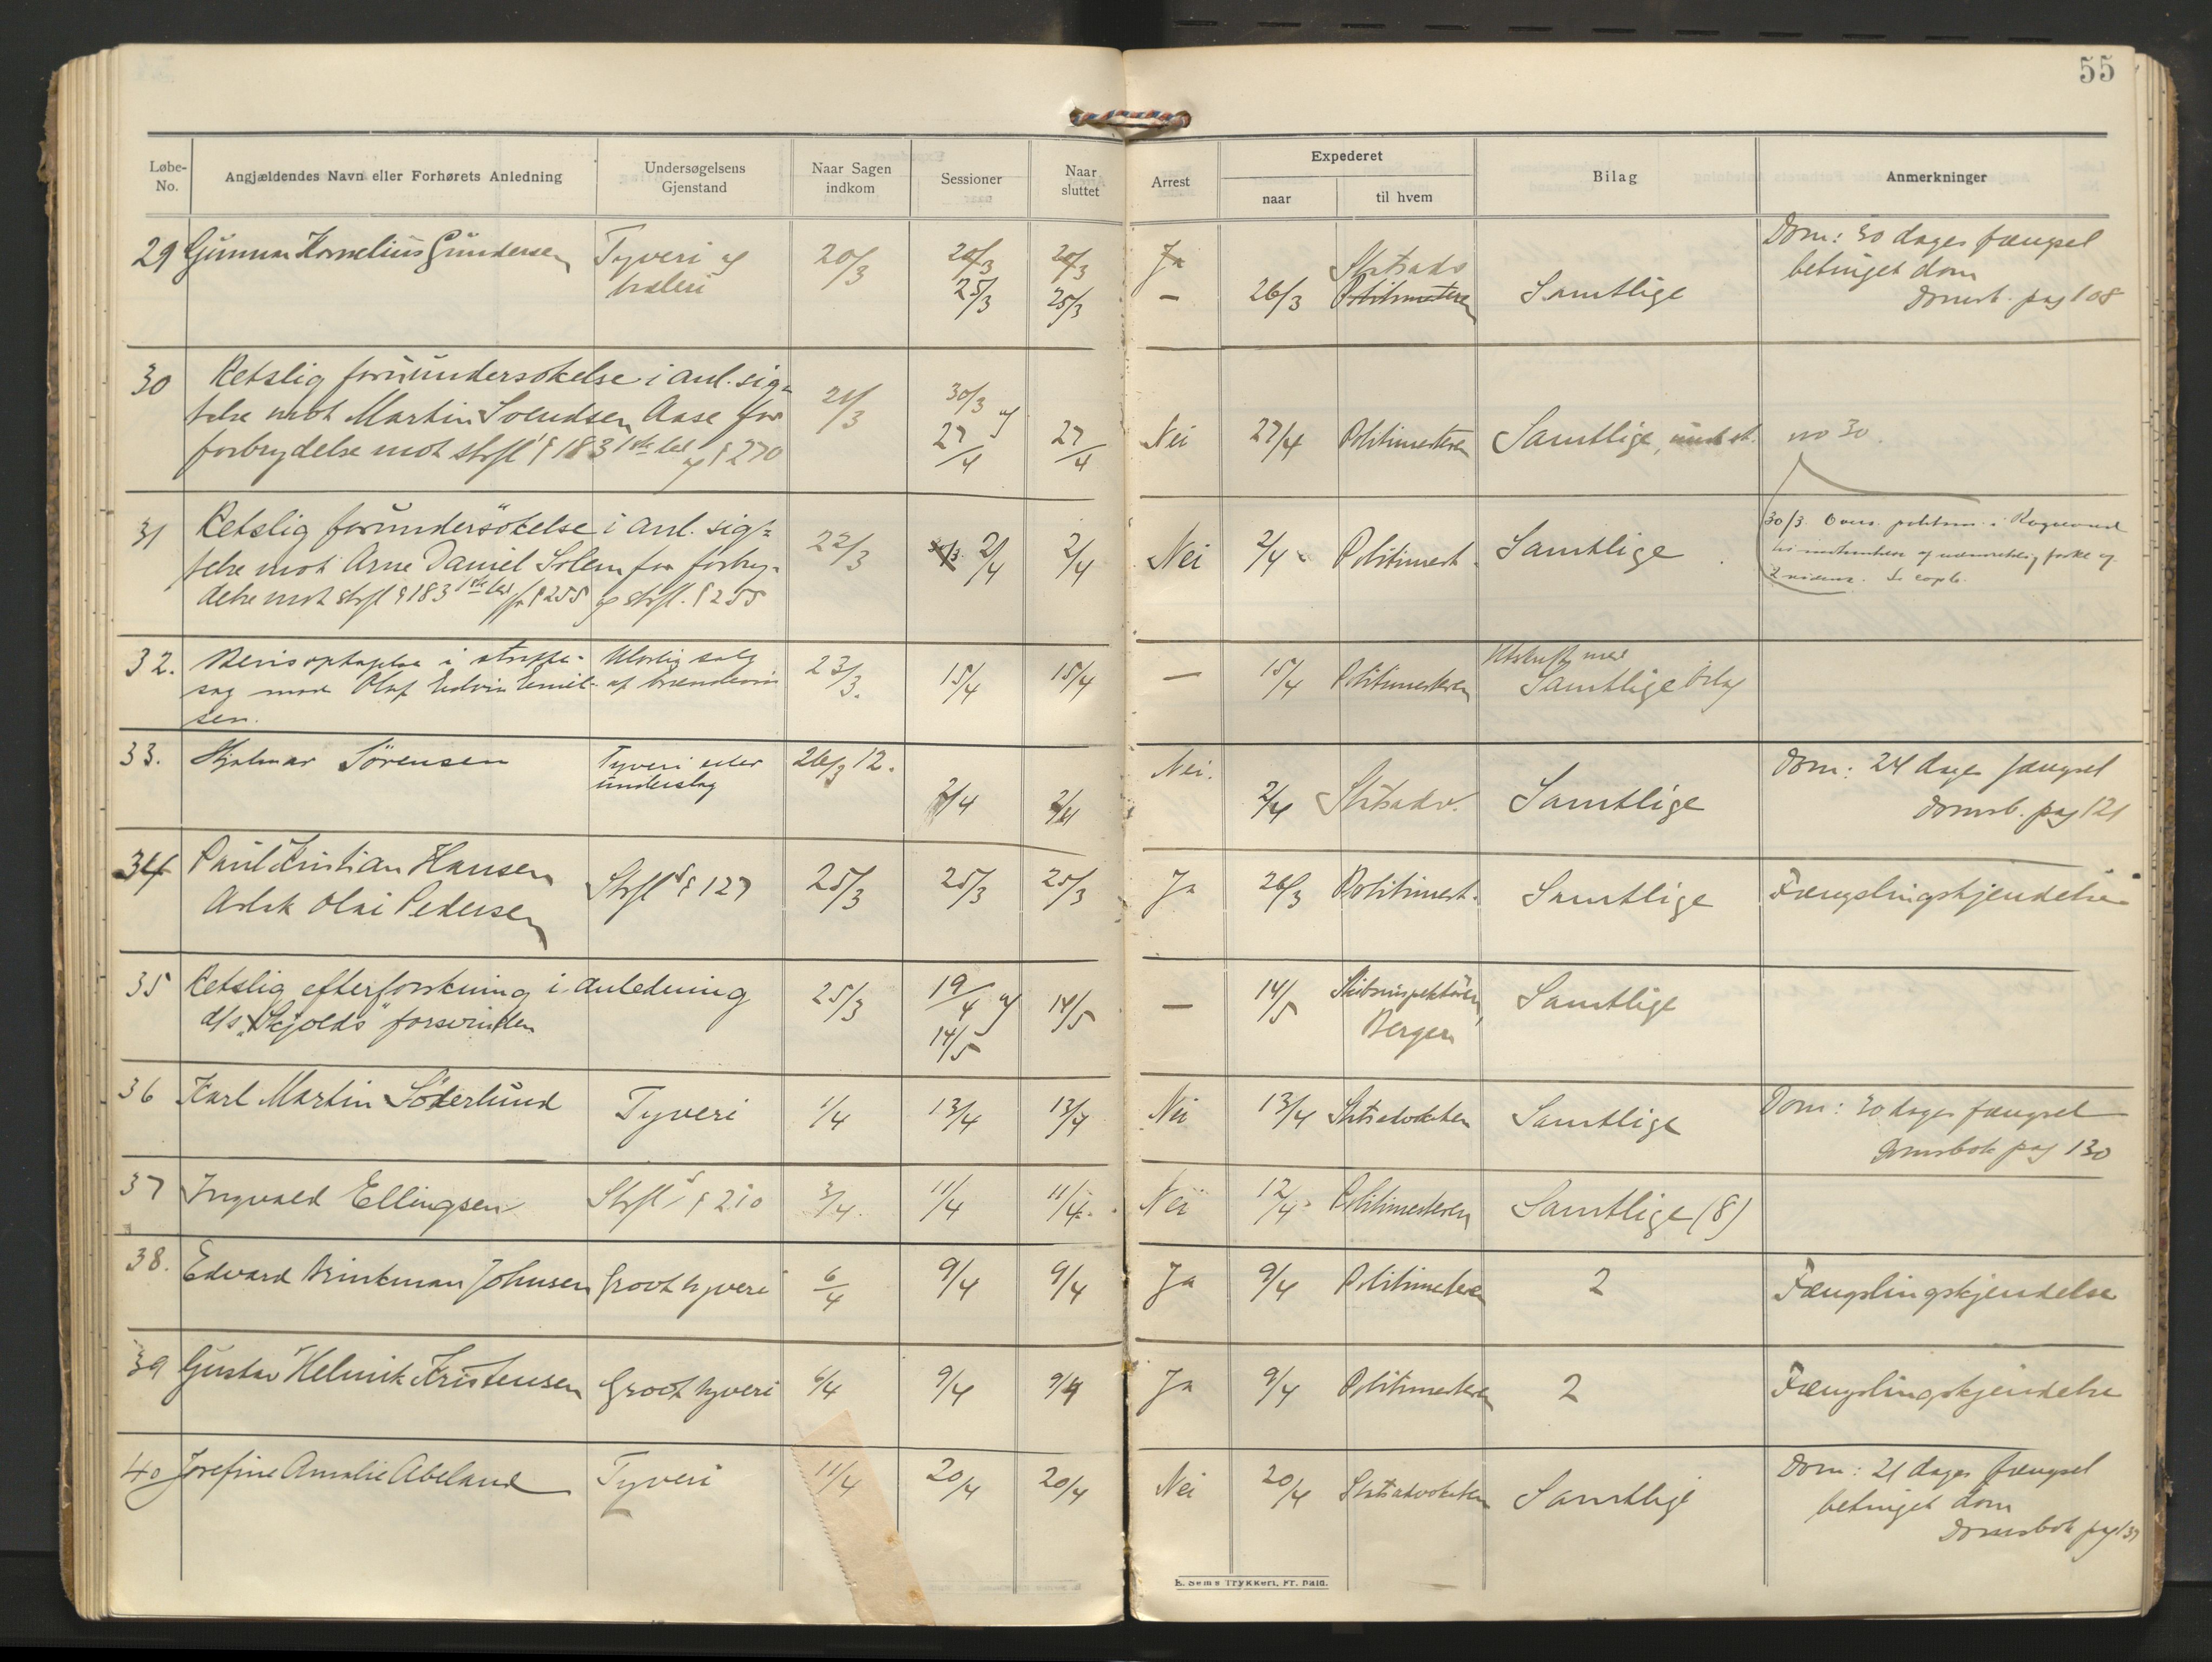 55
Løbe-No. Angjældendes Navn eller Forhørets Anledning Undersøgelsens Gjenstand Naar Sagen indkom Sessioner Naar sluttet Arrest Expederet naar til hvem Bilag Anmerkninger
29 Gunnar Kornelius Gundersen Tyveri og hæleri 20/3 20/3 25/3 20/3 25/3 Ja — 26/3 Statsadv Politimesteren Samtlige Dom: 30 dages fængsel
betinget dom
Domsb. pag 108
30 Retslig forundersökelse i anl. sig-
telse mot Martin Svendsen Aase for
forbrydelse mot strfl § 183 1ste led og § 270 21/3 30/3 og 27/4 27/4 Nei 27/4 Politimesteren Samtlige, no 30.
31 Retslig forundersökelse i anl. sigt-
telse mot Arne Daniel Solem for forbry-
delse mot strfl § 183 1ste led jfr § 255 og strfl. § 255 22/3 2/4 2/4 Nei 2/4 Politimest. Samtlige
30/3
32. Bevisoptagelse i straffe-
sag mod Olaf Edvin Emil-
sen. Ulovlig salg
af brændevin 23/3. 15/4 15/4 — 15/4 Politimesteren Utskrift med
Samtlige bilag
33. Hjalmar Sörensen Tyveri eller
underslag 26/3 12. 2/4 2/4 Nei. 2/4 Statsadv. Samtlige Dom: 24 dages fængsel
Domsb. pag 121
34 Paul Kristian Hansen
Olai Pedersen Strfl's § 127 25/3 25/3 25/3 Ja 26/3 Politimest. Samtlige Fængslingskjendelse
35 Retslig efterforskning i anledning
d/s "Skjolds" forsvinden 25/3 19/4 og 14/5 14/5 — 14/5 Skibsinspektören,
Bergen Samtlige
36 Karl Martin Söderlund Tyveri 1/4 13/4 13/4 Nei 13/4 Statsadvokaten Samtlige Dom: 30 dages fængsel
Domsbok pag 130
37 Ingvald Ellingsen Strfl's § 210 3/4. 11/4 11/4. Nei 12/4 Politimesteren Samtlige (8)
38. Edvard Brinkman Johnsen Grovt tyveri 6/4 9/4 9/4 Ja 9/4 Politimesteren 2 Fængslingskjendelse
39 Gustav Helmik Kristensen Grovt tyveri 6/4 9/4 9/4 Ja 9/4 Politimesteren 2 Fængslingskjendelse
40 Josefine Amalie Abeland Tyveri 11/4 20/4 20/4 Nei 20/4 Statsadvokaten Samtlige Dom: 21 dages fængsel
betinget dom
Domsbok pag 137
E. Sems Trykkeri, Fr.hald.